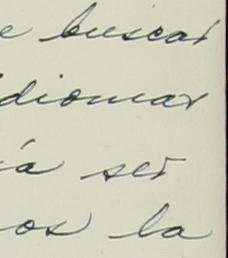 e buscar
idiomas
ía ser
os la